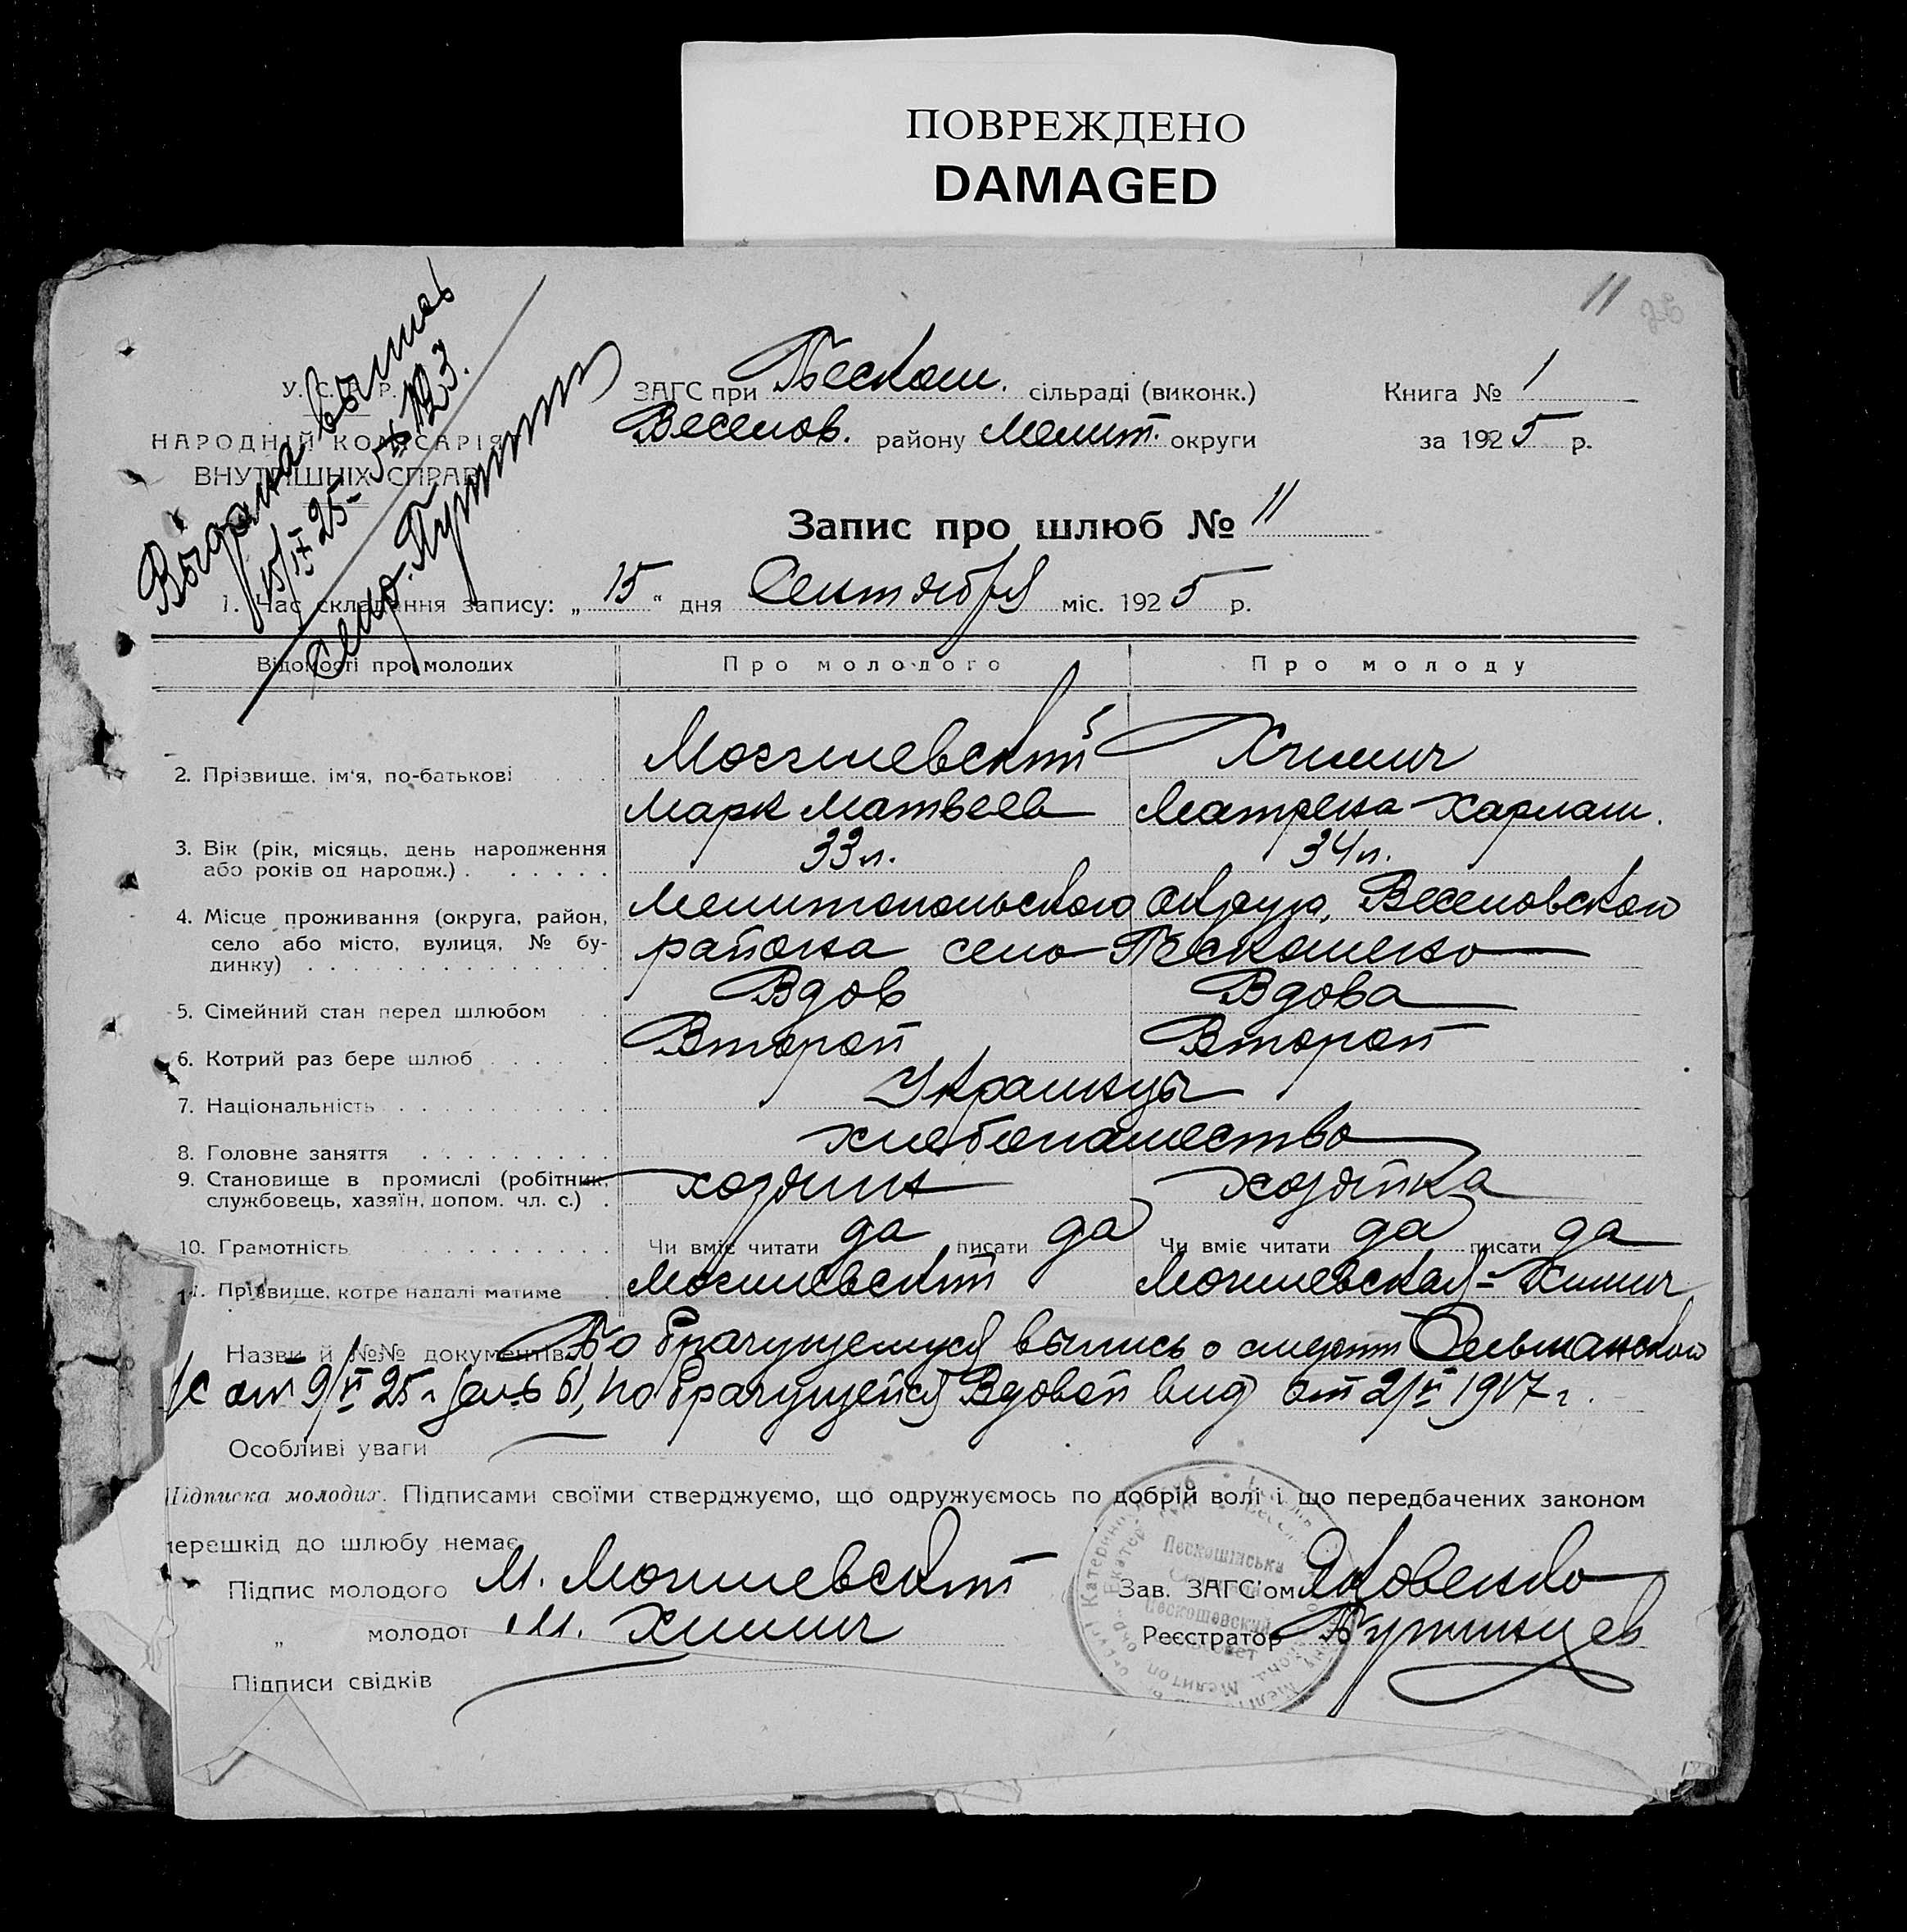 ПОВРЕЖДЕНО
DAMAGED
11
Выдана выпись
15/IX 25 №123.
У. С. Р. Р.
НАРОДНІЙ КОМІСАРІЯТ
ВНУТРІШНІХ СПРАВ
ЗАГС при Пескош. сільраді (виконк.)
Веселов. району Мелит. округи
Книга № 1
за 1925 р.
Запис про шлюб № 11
1. Час складання запису: „15“ дня Сентября міс. 1925 р.
Відомості про молодих Про молодого Про молоду
2. Прізвище, ім'я, по-батькові Могилевский Химич
Марк Матвеев Матрена Харлам.
3. Вік (рік, місяць, день народження 33 л. 34 л.
або років од народж.)
4. Місце проживання (округа, район, Мелитопольского округа, Веселовского
село або місто, вулиця, № бу- района село Пескошено
динку)
5. Сімейний стан перед шлюбом Вдов Вдова
6. Котрий раз бере шлюб Второй Второй
7. Національність Украинцы
8. Головне заняття хлебопашество
9. Становище в промислі (робітник, хозяин хозяйка
службовець, хазяїн, допом. чл. с.)
10. Грамотність Чи вміє читати да писати да Чи вміє читати да писати да
11. Прізвище, котре надалі матиме Могилевский Могилевская-Химич
Назви й №№ документів По брачущемуся выпись о смерти
с от 9/VI 25 г. за № 61, по брачущейся Вдовой вид от 2/VI 1917 г.
Особливі уваги
Підписка молодих. Підписами своїми стверджуємо, що одружуємось по добрій волі і що передбачених законом
перешкід до шлюбу немає
Підпис молодого М. Могилевский
„ молодої М. Химич
Підписи свідків
Зав. ЗАГС'ом Яковенко
Реєстратор
Пескошінська
Пескошевский